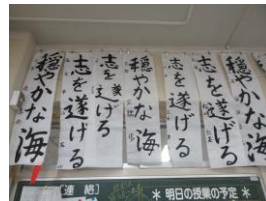 穏やかな海
志を遂げる
志を遂げる
穏やかな海
志を遂げる
志を遂げる
穏やかな海
連絡
＊明日の授業の予定＊